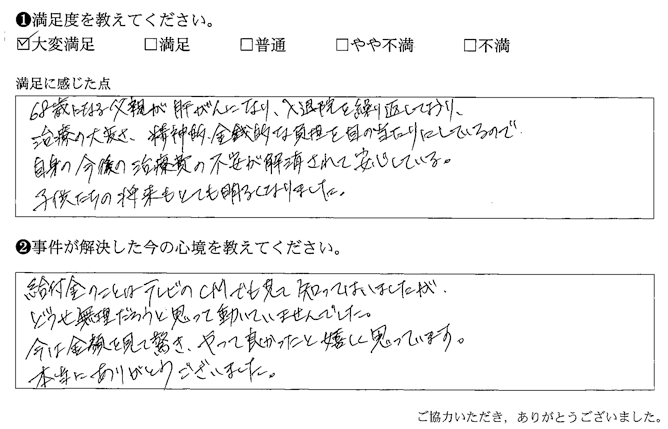 ❶満足度を教えてください。
☑大変満足 □満足 □普通 □やや不満 □不満
満足に感じた点
68歳になる父親が肝がんになり、入退院を繰り返しており、
治療の大変さ、精神的、金銭的な負担を目の当たりにしているので
自身の今後の治療費の不安が解消されて安心している。
子供たちの将来もとても明るくなりました。
❷事件が解決した今の心境を教えてください。
給付金のことはテレビのCMでも見て知ってはいましたが、
どうせ無理だろうと思って動いていませんでした。
今は金額を見て驚き、やって良かったと嬉しく思っています。
本当にありがとうございました。
ご協力いただき，ありがとうございました。